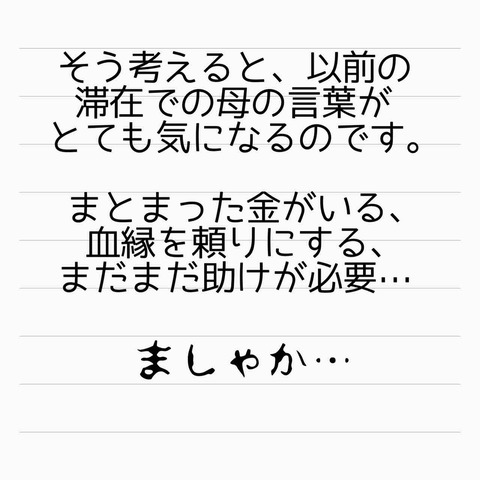 そう考えると、以前の
滞在での母の言葉が
とても気になるのです。
まとまった金がいる、
血縁を頼りにする、
まだまだ助けが必要…
ましゃか…